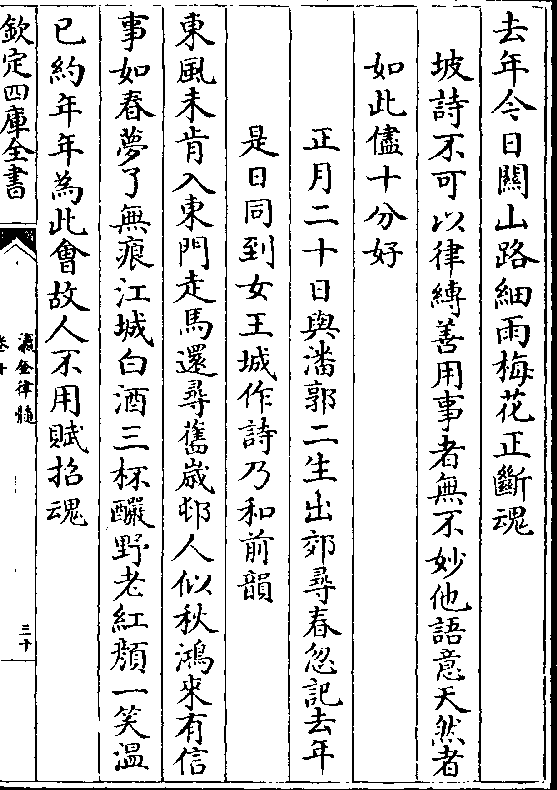 去年今日關山路細雨梅花正斷魂
坡詩不可以律縛善用事者無不妙他語意天然者
如此儘十分好
正月二十日與潘郭二生出郊尋春忽記去年
是日同到女王城作詩乃和前韻
東風未肯入東門走馬還尋舊歲邨人似秋鴻來有信
事如春夢了無痕江城白酒三杯釅野老紅顏一笑温
已約年年為此會故人不用賦招魂
欽定四庫全書
瀛奎律髓
卷十
三十